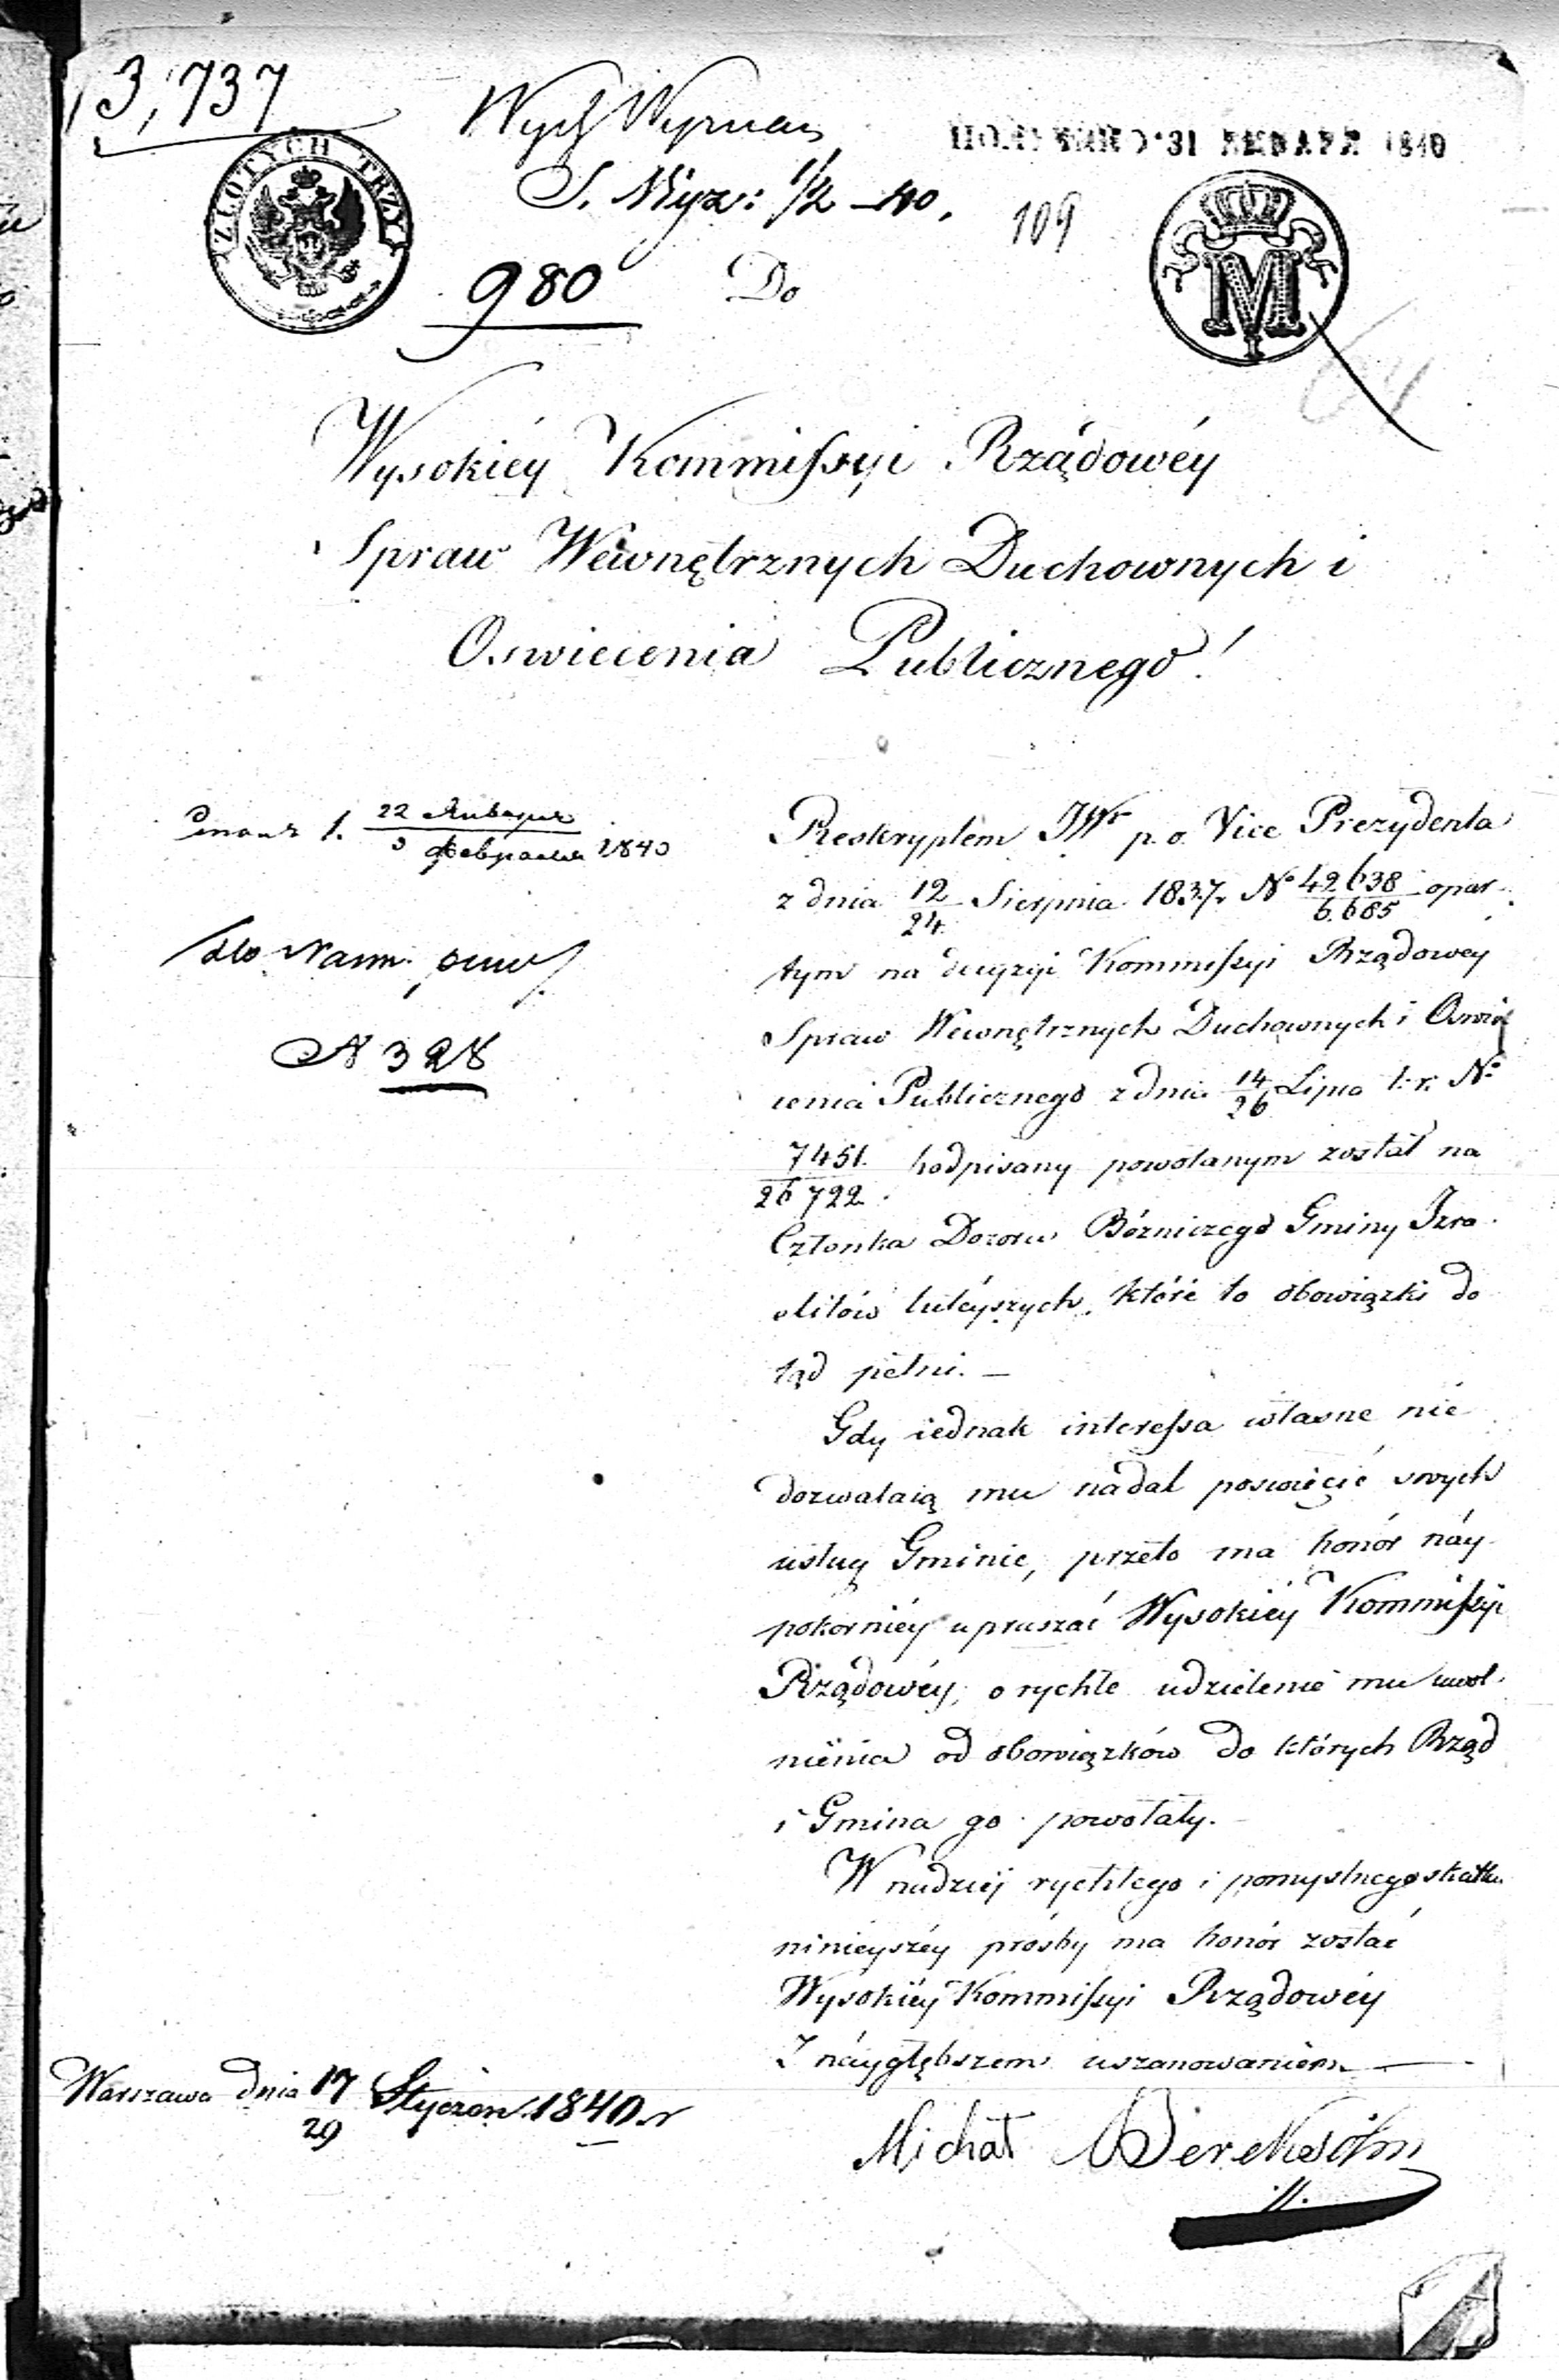 3,737
Wych Wyznań
ZŁOTYCH TRZY
ПОЛУЧЕНО 31 ЯНВАРЯ 1840
S. Nyz: 1/2 – 40.
109
980
Do
M
I
Wysokiéy Kommissyi Rządowéy
Spraw Wewnętrznych Duchownych i
Oswiecenia Publicznego!
22 Января
3 Февраля 1840
N 328
Reskryptem JWo p.o. Vice Prezydenta
z dnia 12/24 Sierpnia 1837 r. No 42638/6.685 opar-
tym na decyzyi Kommissyi Rządowéy
Spraw Wewnętrznych Duchownych i Oswie
cenia Publicznego z dnia 14/26 Lipca t. r. No
7451./26722. Podpisany powołanym został na
Członka Dozoru Bóżniczego Gminy Izra-
elitów tuteyszych, które to obowiązki do
tąd pełni. —
Gdy iednak interessa własne nie
dozwalaią mu nadal poswięcić swych
usług Gminie, przeto ma honór náy-
pokorniéy upraszać Wysokiéy Kommissyi
Rządowéy, o rychłe udzielenie mu uwol-
nienia od obowiązków do których Rząd
i Gmina go powołały.
W nadziei rychłego i pomyslnego skutku
ninieyszéy prósby ma honór zostać
Wysokiéy Kommissyi Rządowéy
Z náygłębszem uszanowaniem
Warszawa dnia 17/29 Styczen 1840 r
Michał Bereksohn